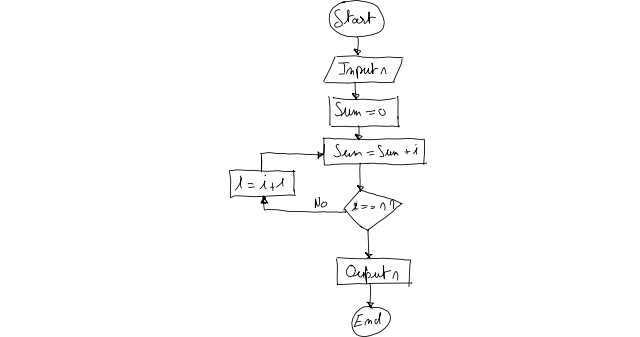 Start
Input n
Sum = 0
Sum = Sum + i
i = i + 1
No
i == n ?
Ouput n
End